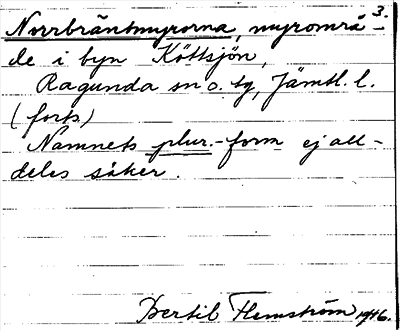 3.
Norrbräntmyrorna, myrområ-
de i byn Köttsjön,
Ragunda sn o. tg, Jämtl. l.
(forts)
Namnets plur.-form ej all-
deles säker.
Bertil Flemström 1946.